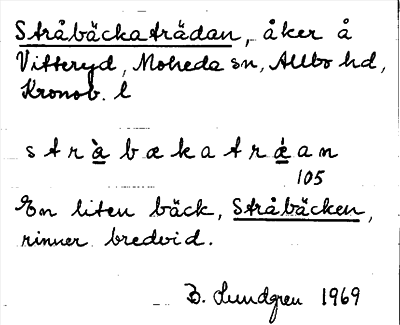 Stråbäckaträdan, åker å
Vitteryd, Moheda sn, Allbo hd,
Kronob. l
s t r à b æ k a t r ǽ a n
105
En liten bäck, Stråbäcken,
rinner bredvid.
B. Lundgren 1969